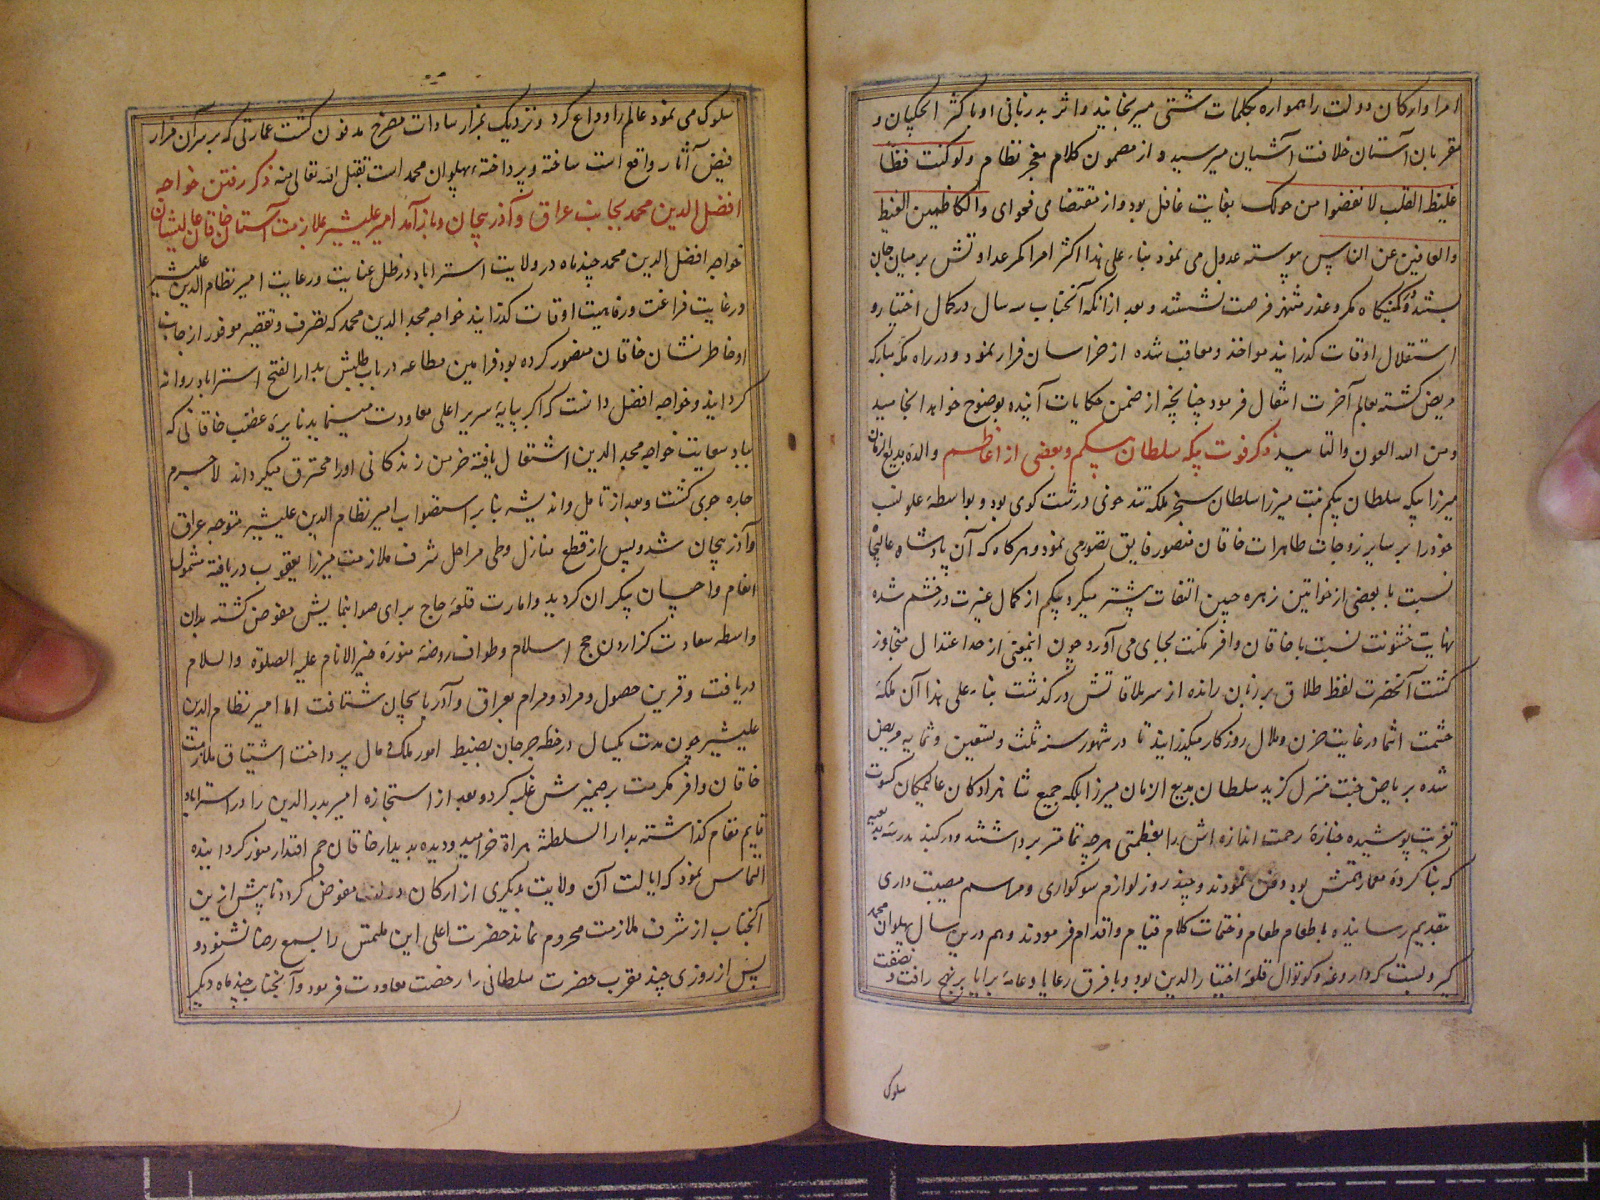 امرا و ارکان دولت را همواره بکلمات شتی میرنجانید و اثر بد زبانی او باکثر ایچکیان و
مقربان آستان خلافت آشیان میرسید و از مضمون کلام معجز نظام ولو کنت فظا
غلیظ القلب لانفضوا من حولک بغایت غافل بود و از مقتضای فحوای والکاظمین الغیظ
والعافین عن الناس پیوسته عدول می نمود بناء علی هذا اکثر امرا کمر عداوتش بر میان جان
بستند و کمینگاه مکر و غدر منتهز فرصت نشستند و بعد از انکه آنجناب سه سال در کمال اختیار و
استقلال اوقات گذرانید مواخذ و معاقب شده از خراسان فرار نمود و در راه مکه مبارکه
مریض گشته بعالم آخرت انتقال فرمود چنانچه از ضمن حکایات آینده بوضوح خواهد انجامید
ومن الله العون والتایید ذکر فوت بیکه سلطان بیکم و بعضی از اعاظم والده بدیع الزمان
میرزا بیکه سلطان بیکم بنت میرزا سلطان سنجر ملکه تند خوی درشت کوی بود و بواسطه علو نسب
خود را بر سایر زوجات طاهرات خاقان منصور فایق تصور می نمود و هرکاه که آن پادشاه عالیجاه
نسبت با بعضی از خواتین زهره جبین التفات بیشتر میکرد بیکم از کمال غیرت در خشم شده
نهایت خشونت نسبت با خاقان وافر مکنت بجای می آورد چون اینمعنی از حد اعتدال متجاوز
گشت آنحضرت لفظ طلاق بر زبان رانده از سر ملاقاتش درگذشت بناء علی هذا آن ملکه
حشمت انتما در غایت حزن و ملال روزکار میگذرانید تا در شهور سنه ثلث و تسعین و ثمانمایه مریض
شده بریاض جنت منزل گزید سلطان بدیع الزمان میرزا بلکه جمیع شاهزادگان عالیمکان کسوت
تعزیت پوشیده جنازه رحمت اندازه اش را بعظمتی هرچه تمامتر برداشتند و در گنبد مدرسه بدیعیه
که بنا کرده معمار همتش بود دفن نمودند و چند روز لوازم سوکواری و مراسم مصیبت داری
بتقدیم رسانیده باطعام طعام و ختمات کلام قیام و اقدام فرمودند و هم درین سال پهلوان محمد
که داروغه و کوتوال قلعه اختیارالدین بود و با فرق رعایا و عامه برایا بر نهج رافت و نصفت
سلوک
سلوک می نمود عالم را وداع کرد و نزدیک بمزار سادات مصرخ مدفون گشت عمارتی که بر سر آن مزار
فیض آثار واقع است ساخته و پرداخته پهلوان محمد است تقبل الله تعالی منه ذکر رفتن خواجه
افضل الدین محمد بجانب عراق و آذربیجان و باز آمدن امیر علیشیر بملازمت آستان خاقان عالیشان
خواجه افضل الدین محمد چند ماه در ولایت استراباد در ظل عنایت و رعایت امیر نظام الدین علیشیر
در غایت فراغت و رفاهیت اوقات گذرانید خواجه مجد الدین محمد که تصرف و تقصیر موفور از جانب
او خاطر نشان خاقان منصور کرده بود فرامین مطاعه در باب طلبش بدارالفتح استراباد روانه
گردانید و خواجه افضل دانست که اکر بپایه سریر اعلی معاودت مینماید نایره غضب خاقانی که
بباد سعایت خواجه مجد الدین اشتعال یافته خرمن زندکانی او را محترق میکرداند لاجرم
چاره جوی گشت و بعد از تامل و اندیشه بنابر استصواب امیر نظام الدین علیشیر متوجه عراق
و آذربیجان شد و پس از قطع منازل و طی مراحل شرف ملازمت میرزا یعقوب دریافته مشمول
انعام و احسان بیکران کردید و امارت قافله حاج برای صوابنمایش مفوض گشته بدان
واسطه سعادت گزاردن حج اسلام و طواف روضه منوره خیر الانام علیه الصلوة والسلام
دریافت و قرین حصول مراد و مرام بعراق و آذربایجان شتافت اما امیر نظام الدین
علیشیر چون مدت یکسال در خطه جرجان بضبط امور ملک و مال پرداخت اشتیاق ملازمت
خاقان وافر مکرمت بر ضمیرش غلبه کرد و بعد از استجازه امیر بدر الدین را در استراباد
قایم مقام گذاشته بدار السلطنه هراة خرامید و دیده بدیدار خاقان جم اقتدار منور گردانیده
التماس نمود که ایالت آن ولایت بدیگری از ارکان دولت مفوض گردد تا پیش ازین
آنجناب از شرف ملازمت محروم نماند حضرت اعلی این ملتمس را بسمع رضا نشنود و
پس از روزی چند مقرب حضرت سلطانی را رخصت معاودت فرمود و آنجناب چند ماه دیگر